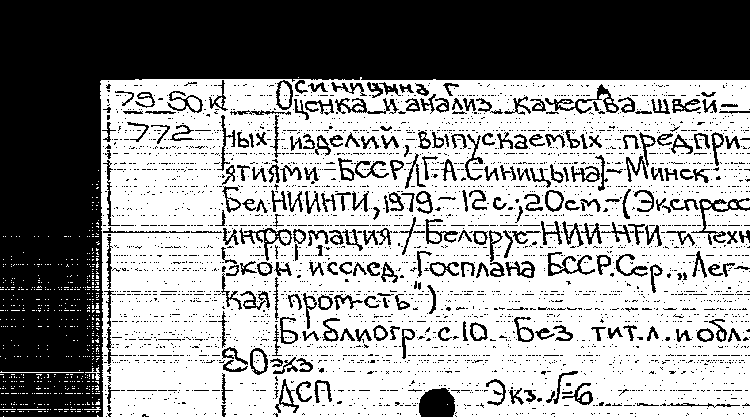 Синицына, Г
79-50к Оценка и анализ качества швей-
772 ных изделий, выпускаемых предпри-
ятиями БССР/[Г.А.Синицына]-Минск:
БелНИИНТИ, 1979.- 12 с.; 20см.-(Экспресс
информация / Белорус. НИИ НТИ и техн
экон. исслед. Госплана БССР. Сер. „Лег-
кая пром-сть").
Библиогр.: с.10 Без тит.л. и обл.
80экз.
ДСП. Экз. №6